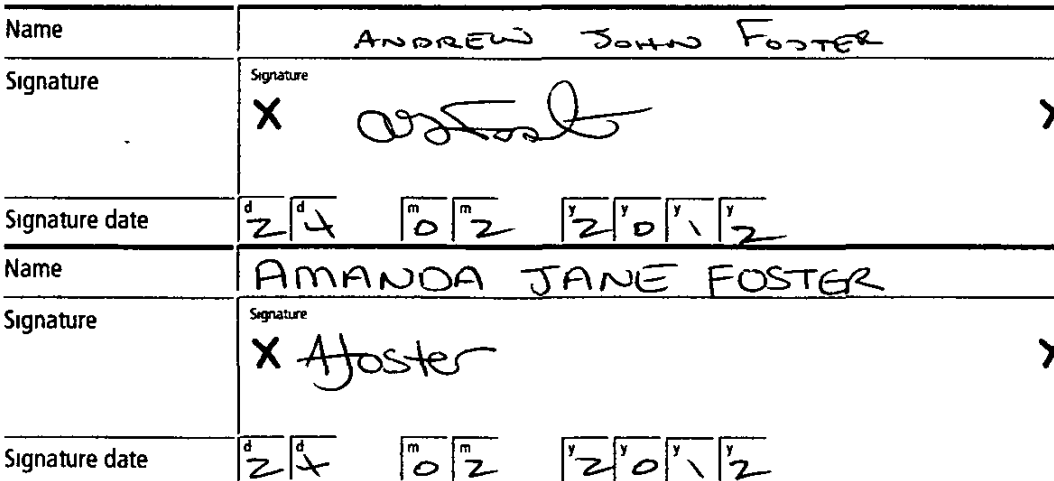 Name ANDREW JOHN FOSTER
Signature Signature
X X
Signature date d 2 d 4 m 0 m 2 y 2 y 0 y 1 y 2
Name AMANDA JANE FOSTER
Signature Signature
X AFoster X
Signature date d 2 d 4 m 0 m 2 y 2 y 0 y 1 y 2